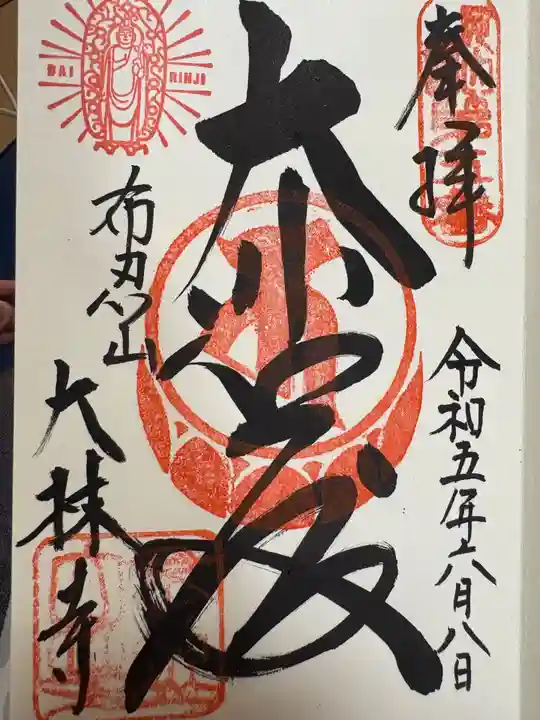 奉拝
令和五年六月八日
大悲殿
布忍山
大林寺
DAI RINJI